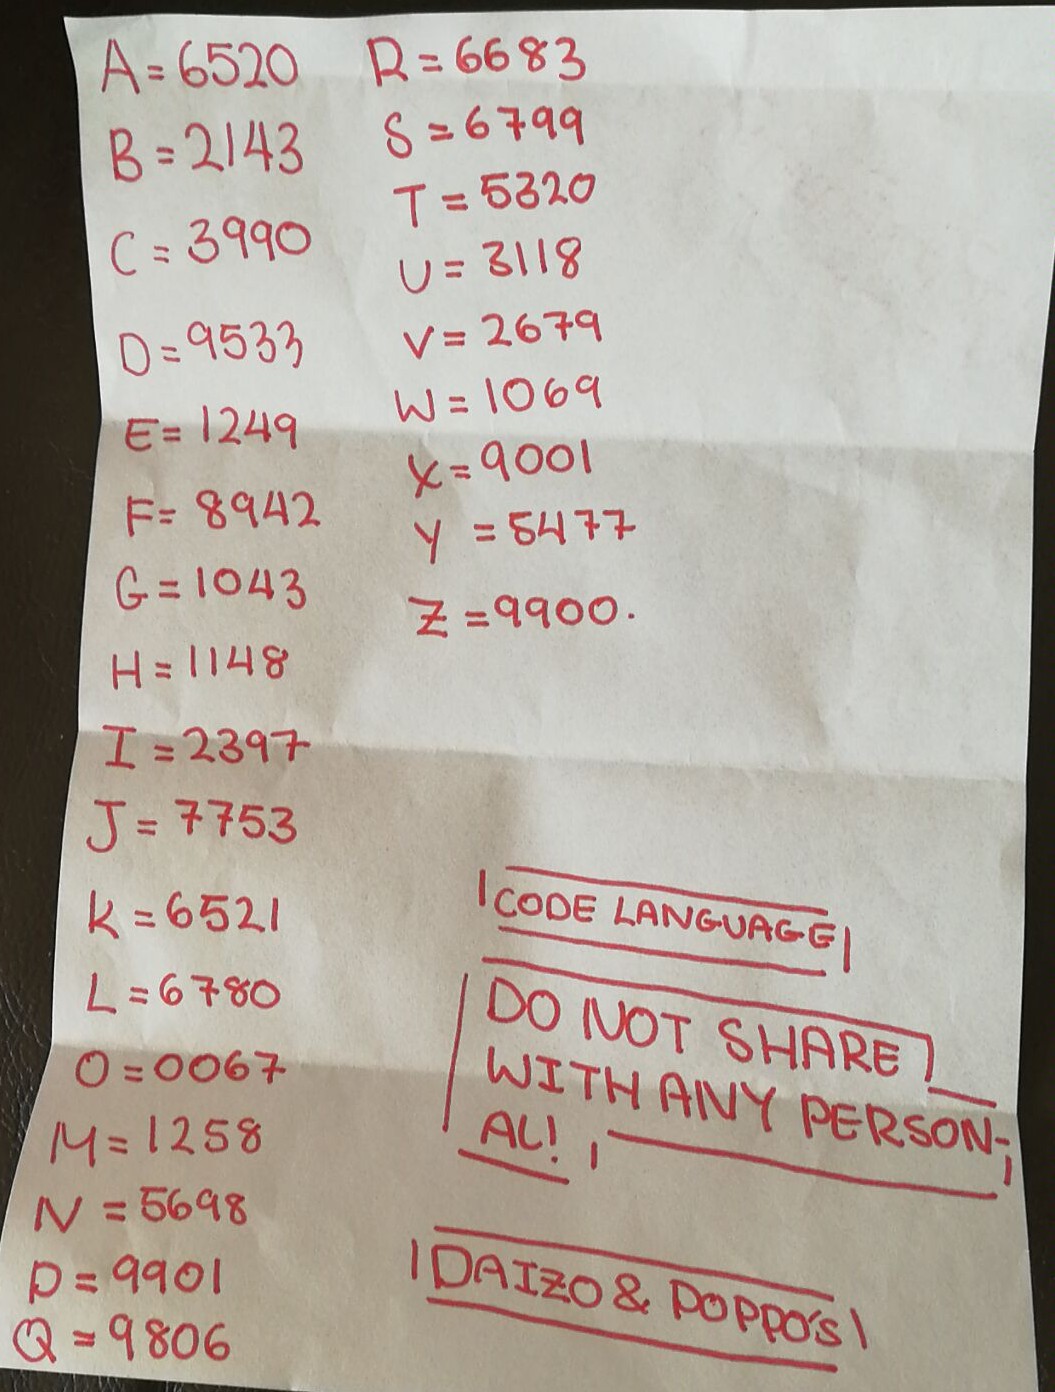 A=6520
B=2143
C=3990
D=9533
E=1249
F=8942
G=1043
H=1148
I=2397
J=7753
K=6521
L=6780
O=0067
M=1258
N=5698
P=9901
Q=9806
R=6683
S=6799
T=5320
U=3118
V=2679
W=1069
X=9001
Y=5477
Z=9900.
CODE LANGUAGE
DO NOT SHARE
WITH ANY PERSON-
AL!
DAIZO & POPPO'S